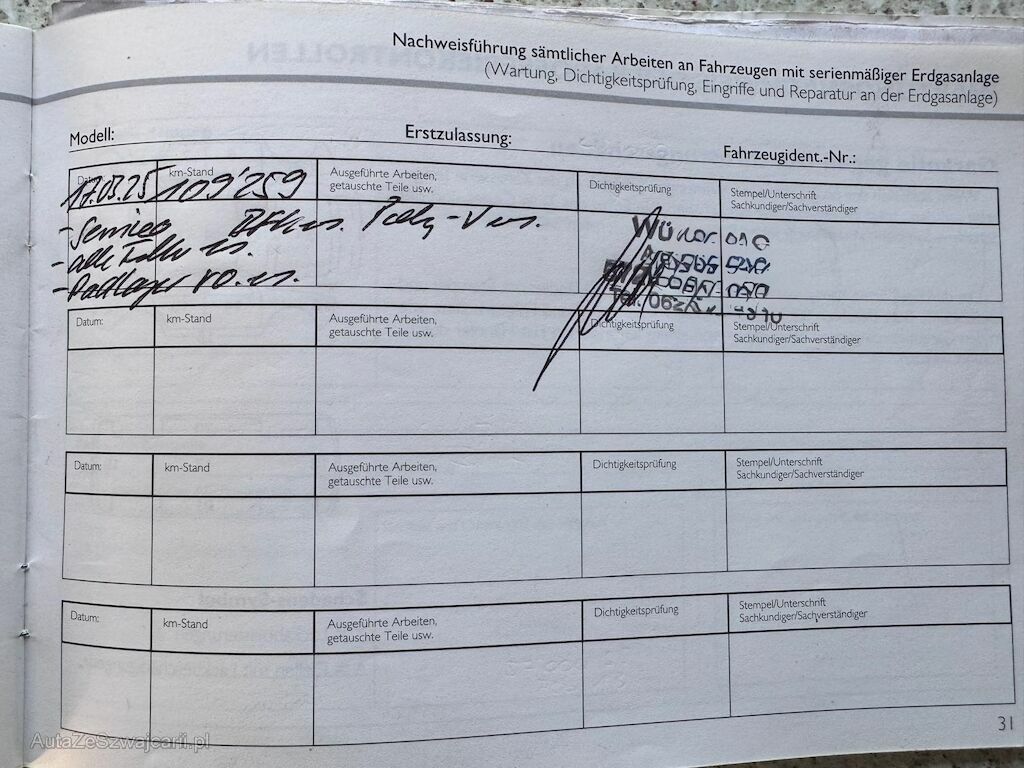 Nachweisführung sämtlicher Arbeiten an Fahrzeugen mit serienmäßiger Erdgasanlage
(Wartung, Dichtigkeitsprüfung, Eingriffe und Reparatur an der Erdgasanlage)
Modell: Erstzulassung: Fahrzeugident.-Nr.:
km-Stand Ausgeführte Arbeiten, Dichtigkeitsprüfung Stempel/Unterschrift
getauschte Teile usw. Sachkundiger/Sachverständiger
17.03.25 109'259
- Service
Datum: km-Stand Ausgeführte Arbeiten, Dichtigkeitsprüfung Stempel/Unterschrift
getauschte Teile usw. Sachkundiger/Sachverständiger
Datum: km-Stand Ausgeführte Arbeiten, Dichtigkeitsprüfung Stempel/Unterschrift
getauschte Teile usw. Sachkundiger/Sachverständiger
Datum: km-Stand Ausgeführte Arbeiten, Dichtigkeitsprüfung Stempel/Unterschrift
getauschte Teile usw. Sachkundiger/Sachverständiger
31
AutaZeSzwajcarii.pl